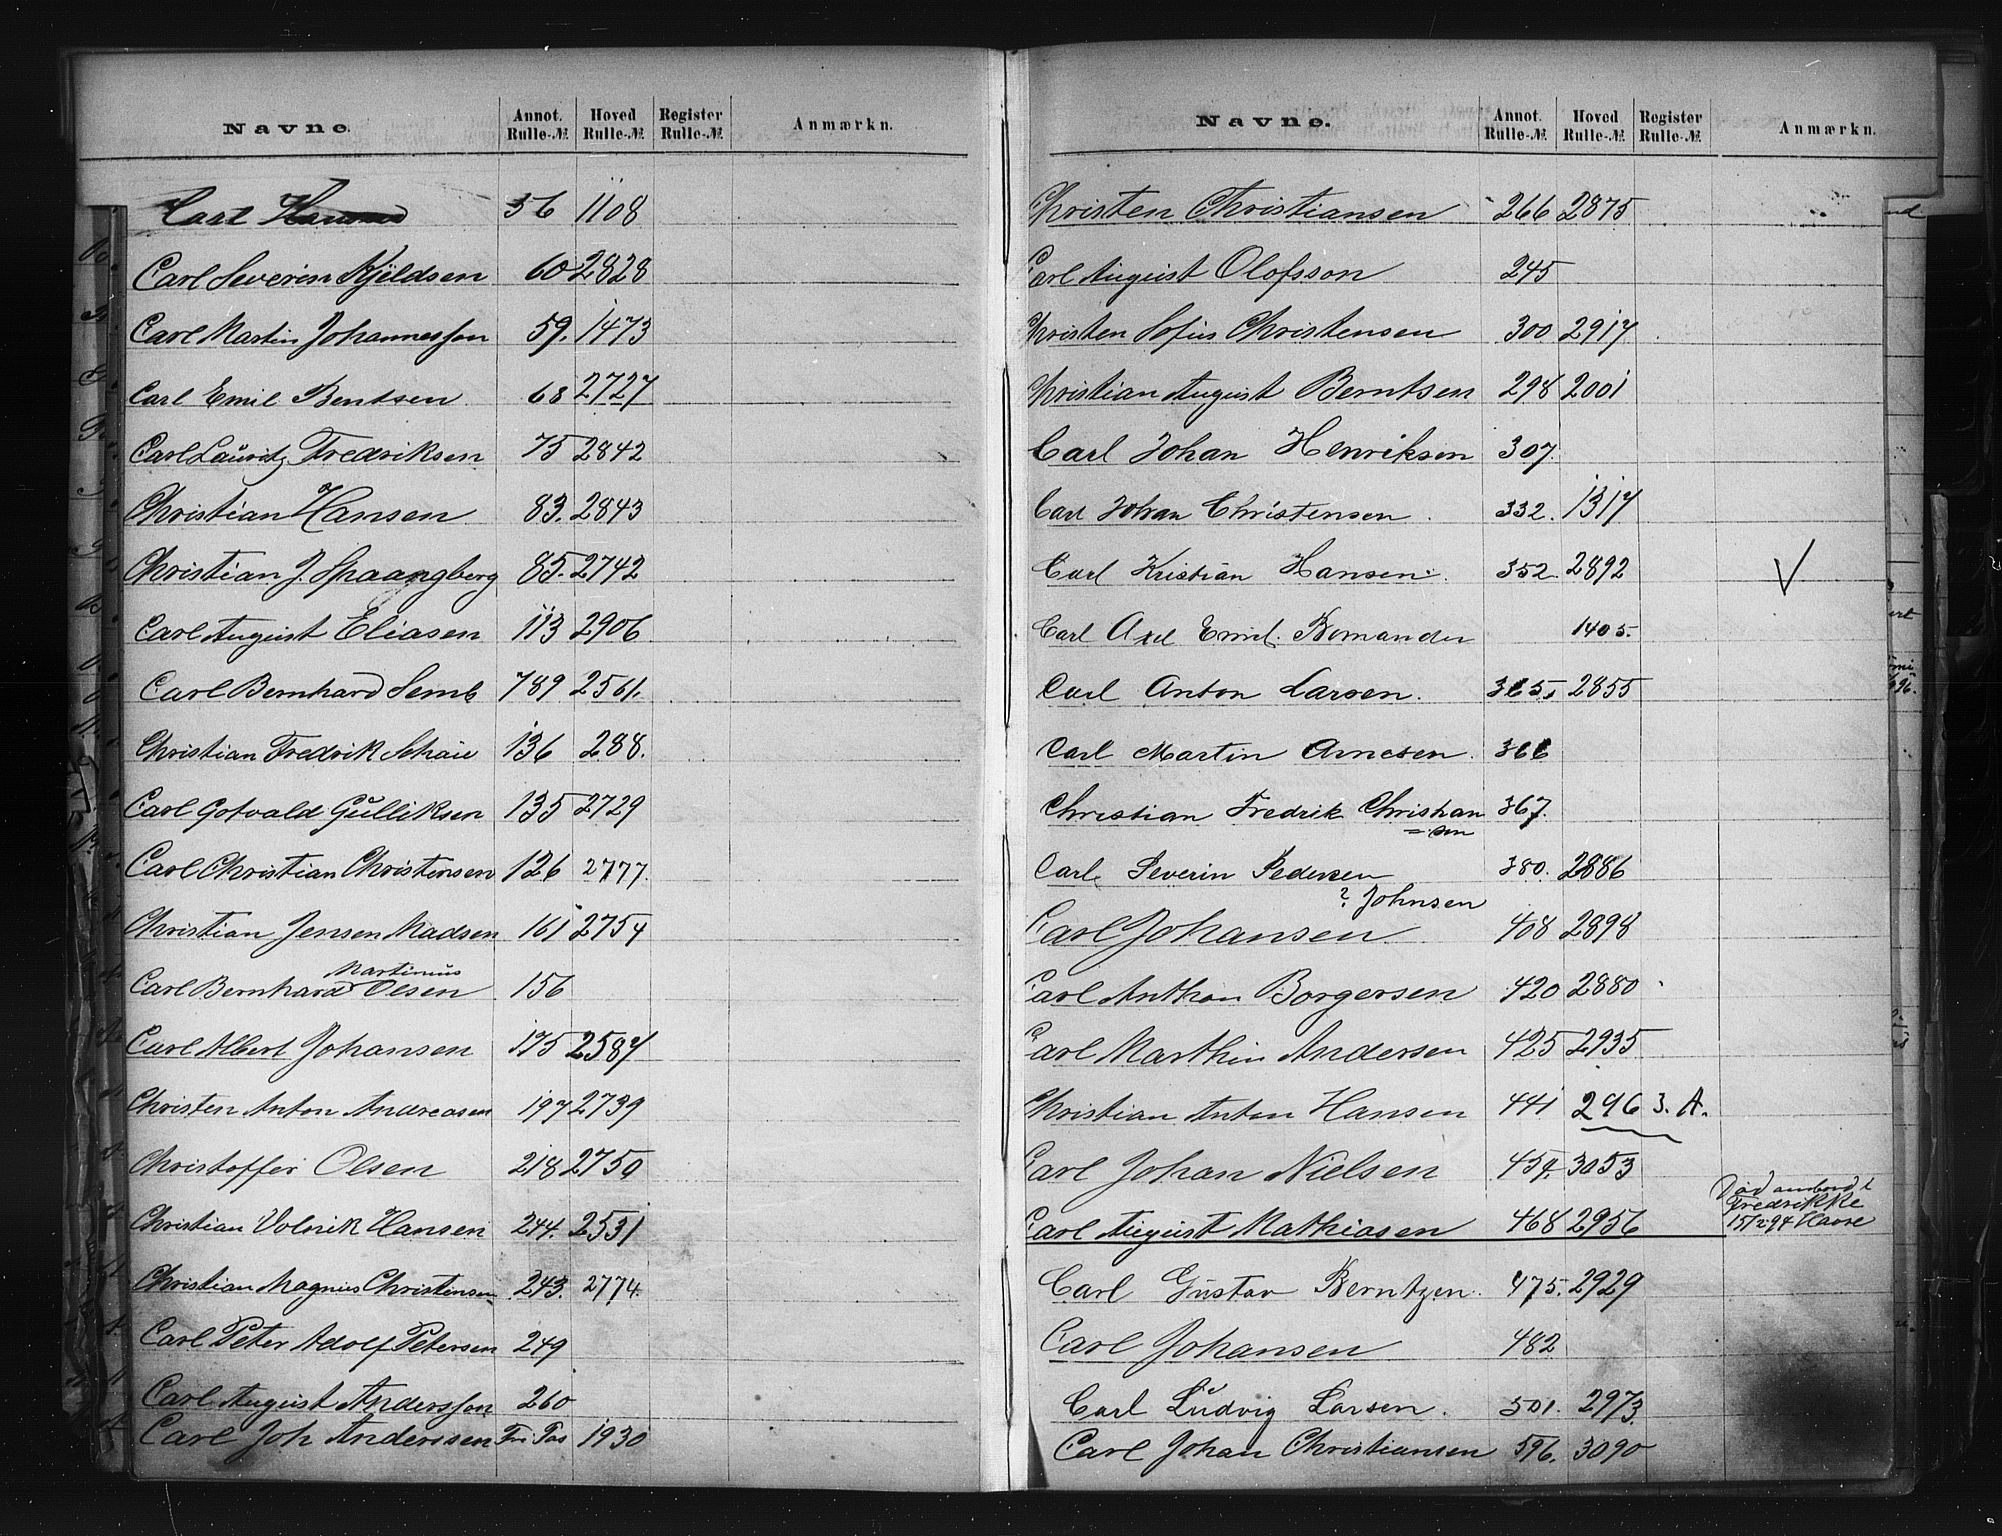 Navne. Annot. Rulle-№ Hoved Rulle-№ Register Rulle-№ Anmærkn.
Carl 56 1108
Carl Severin Kjeldsen 60 2828
Carl Martin Johannesson 59. 1473
Carl Emil Bendsen 68 2727
Carl Lauritz Fredriksen 75 2842
Christian Hansen 83. 2843
Christian J. Spaangberg 85. 2742
Carl August Eliasen 113 2906
Carl Bernhard Semb 789 2561.
Christian Fredrik 136 288.
Carl Gotvald Gulliksen 135 2729
Carl Christian Christensen 126 2777.
Christian Jensen Madsen 161 2754
Martinius
Carl Bernhard Olsen 156
Carl Albert Johansen 175 2587
Christen Anton Andreasen 197 2739
Christoffer Olsen 218 2750
Christian Volrik Hansen 244. 2531
Christian Magnus Christensen 243. 2774.
Carl Peter Adolf Petersen 249
Carl August Andersson 260
Carl Joh Anderssen Fri Pas 1930
Navne. Annot. Rulle-№ Hoved Rulle-№ Register Rulle-№ Anmærkn.
Christen Christiansen 266 2875
Carl August Olofsson 245
Christen Sofus Christensen 300 2917
Christian August Berntsen 298 2001
Carl Johan Henriksen 307.
Carl Johan Christensen. 332. 1317
Carl Kristian Hansen. 352. 2892 V
Carl Axel Emil. Bomander 1405.
Carl Anton Larsen. 365. 2855
Carl Martin Arnesen. 366
Christian Fredrik Christian 367.
=sen
Carl Severin Pedersen 380. 2886
? Johnsen
Carl Johansen 408 2898
Carl Anthon Borgersen 420 2880
Carl Marthin Andersen 425 2935
Christian Anton Hansen 441 2963. A.
Carl Johan Nielsen 454. 3053
Død ombord i
Fredrikke
Carl August Mathiasen 468 2956 15/2 94 Havre
Carl Gustav Berntzen. 475. 2929
Carl Johansen 482
Carl Ludvig Larsen. 501. 2973.
Carl Johan Christiansen 596. 3090